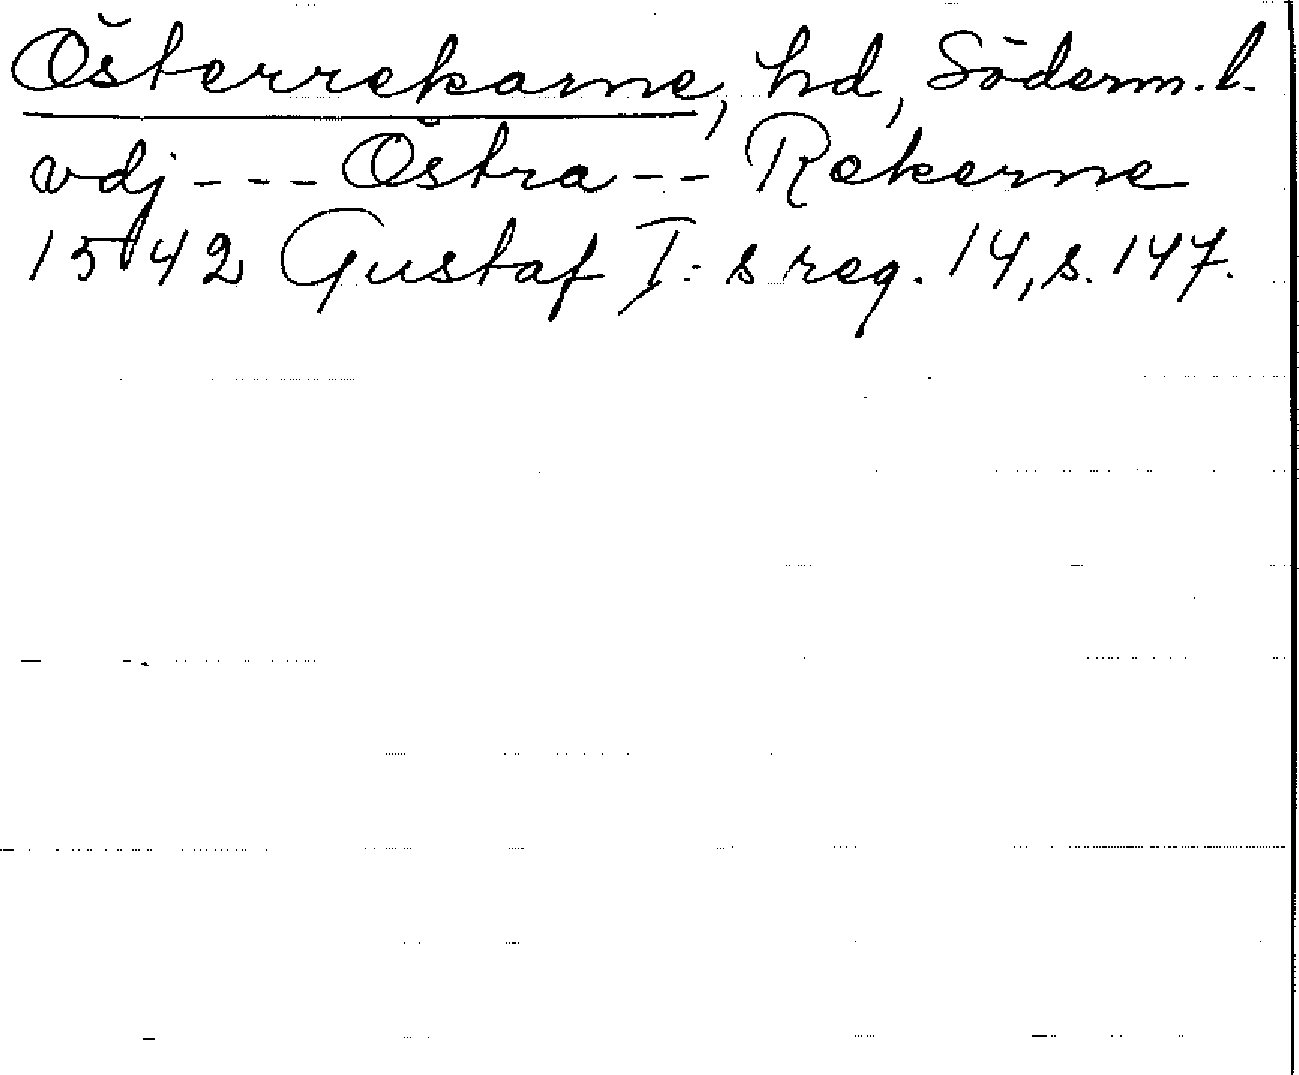 Österrekarne, hd, Söderm. l.
vdj --- Östra -- Rekerne
1542 Gustaf I:s reg. 14, s. 147.